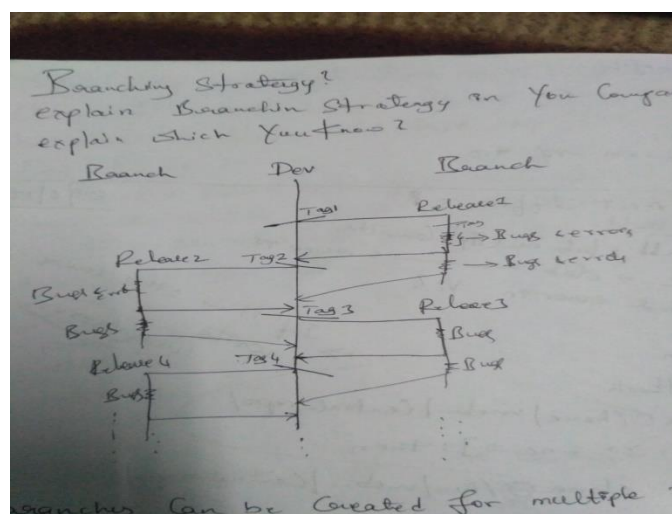 Branching Stratergy?
explain Branchin Stratergy in You Compa
explain which You know?
Branch Dev Branch
Tag1 Release1
Tag
→ Bugs & errors
Release2 Tag2 → Bugs & errors
Bugs
Tag3 Release3
Bugs Bugs
Release4 Tag4 Bugs
Bugs
Branches Can be Created for multiple